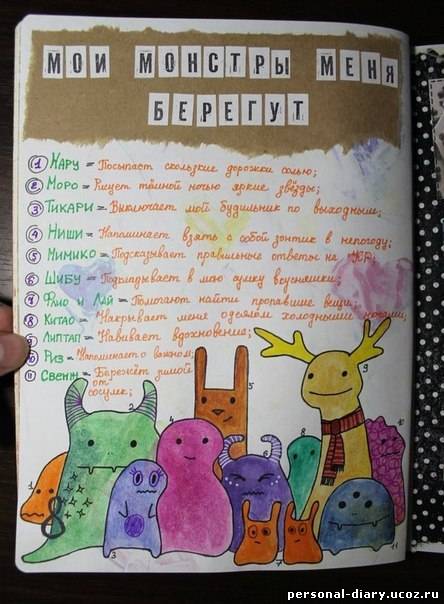 МОИ МОНСТРЫ МЕНЯ
БЕРЕГУТ
1 Нару = Посыпает скользкие дорожки солью;
2 Моро = Рисует тёмной ночью яркие звёзды;
3 Тикари = Выключает мой будильник по выходным;
4 Ниши = Напоминает взять с собой зонтик в непогоду;
5 Мимико = Подсказывает правильные ответы на
6 Шибу = Подкладывает в мою сумку вкусняшки;
7 Рио и Лай = Помогают найти пропавшие вещи;
8 Китао = Накрывает меня одеялом холодными ночами;
9 Липтап = Навивает вдохновение;
10 Риз = Напоминает о важном;
11 Свенн = Бережёт зимой
от
сосулек;
1
2
3
4
5
6
7
8
9
10
11
personal-diary.ucoz.ru